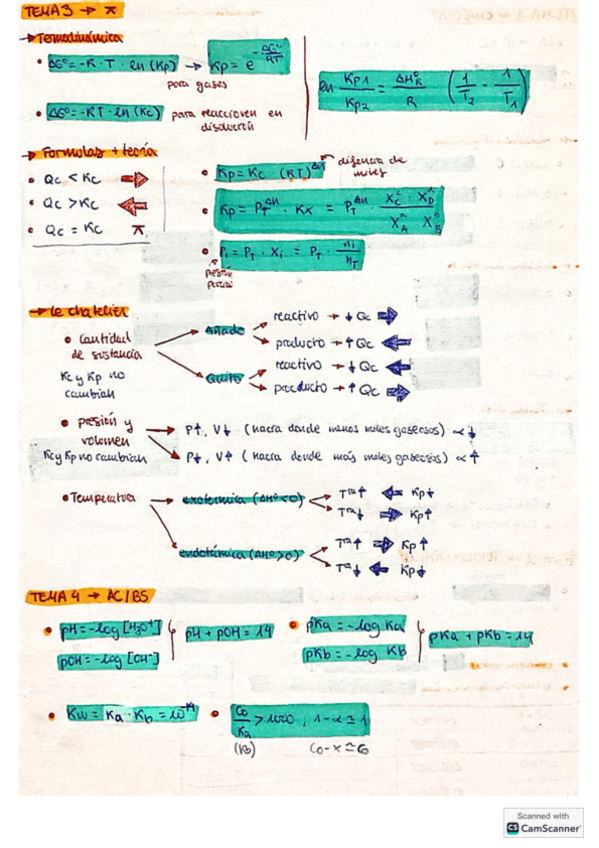 TEMA 3 → π
→ Termodinámica
• ΔG° = -R · T · ln (Kp) → Kp = e^(-ΔG°/RT)
para gases
ln Kp1/Kp2 = ΔH°R/R (1/T2 - 1/T1)
• ΔG° = -RT · ln (Kc) para reacciones en
disolución
→ Formulas + teoría
• Qc < Kc ⇒
• Qc > Kc ⇐
• Qc = Kc π
• Kp = Kc · (RT)^Δn → diferencia de
moles
• Kp = PT^Δn · Kx = PT^Δn · XC^c · XD^n / XA^n XB^n
• Pi = PT · Xi = PT · ni/nT
presión
parcial
→ Le chatelier
• Cantidad
de sustancia
Kc y Kp no
cambian
Añade
reactivo → ↓ Qc ⇒
producto → ↑ Qc ⇐
Quito
reactivo → ↓ Qc ⇐
producto → ↑ Qc ⇒
• presión y
volumen
Kc y Kp no cambian
P↑, V↓ (hacia donde menos moles gaseosos) α ↓
P↓, V↑ (hacia donde más moles gaseosos) α ↑
• Temperatura
exotérmica (ΔH°<0)
Tª↑ ⇐ Kp↓
Tª↓ ⇒ Kp↑
endotérmica (ΔH°>0)
Tª↑ ⇒ Kp↑
Tª↓ ⇐ Kp↓
TEMA 4 → AC/BS
• pH = -log [H3O+]
pOH = -log [OH-]
pH + pOH = 14
• pKa = -log Ka
pKb = -log Kb
pKa + pKb = 14
• Kw = Ka · Kb = 10^-14
• Co/Ka > 1000 ; 1-α ≃ 1
(Kb) Co-x ≃ Co
Scanned with
CS CamScanner